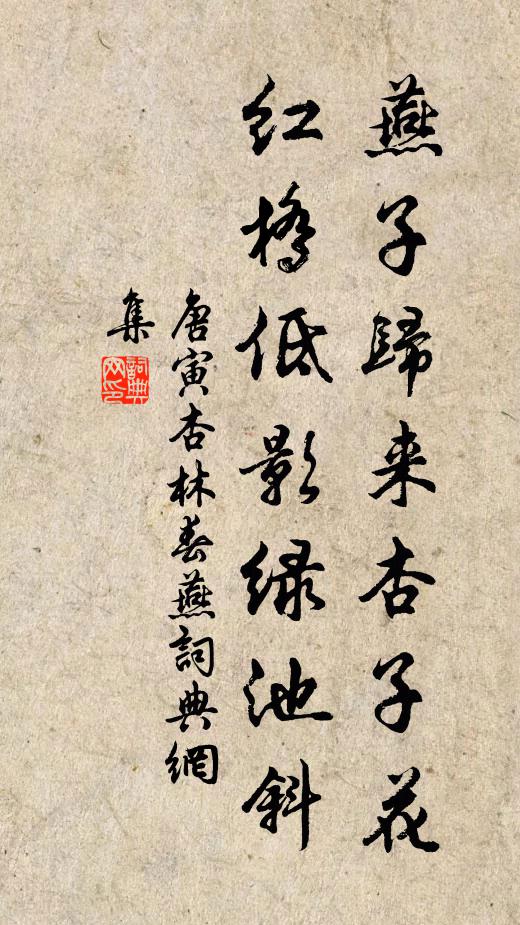 燕子歸来杏子花
紅橋低影緑池斜
唐寅杏林春燕詞典網
集
詞典网印